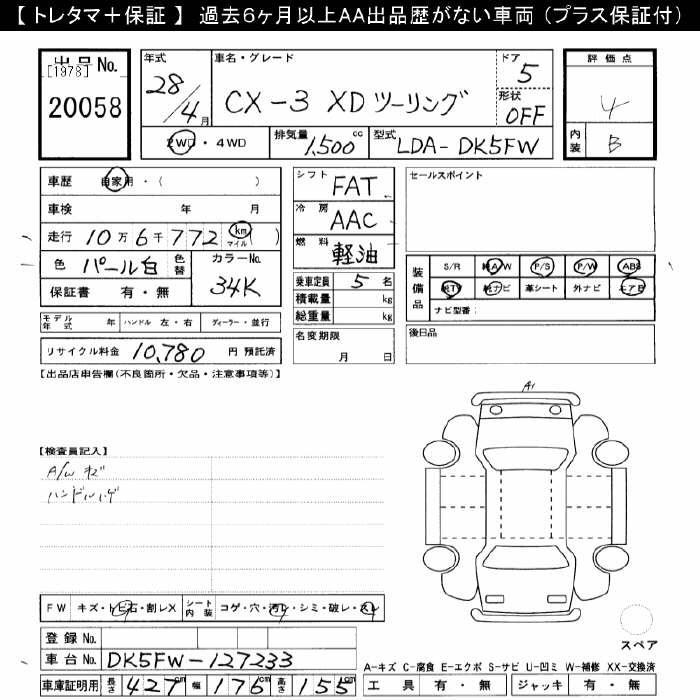 【 トレタマ＋保証 】 過去6ヶ月以上AA出品歴がない車両 (プラス保証付)
出品 No.
[1978]
20058
年式
28/4月
車名・グレード
CX-3 XDツーリング
ドア
5
形状
OFF
2WD・4WD
排気量
1,500 cc
型式
LDA-DK5FW
評価点
4
内装
B
車歴 自家用・( )
車検 年 月
走行 10万6千772 km マイル ( )
色 パール白 色替
カラーNo.
34K
保証書 有・無
シフト FAT
冷房 AAC
燃料 軽油
乗車定員 5 名
積載量 kg
総重量 kg
名変期限
月 日
セールスポイント
装備品
S/R 純A/W P/S P/W ABS
純TV 純ナビ 革シート 外ナビ エアB
ナビ型番:
後日品
モデル年式 年 ハンドル 左・右 ディーラー・並行
リサイクル料金 10,780 円 預託済
【出品店申告欄(不良箇所・欠品・注意事項等)】
【検査員記入】
A/W キズ
ハンドルハゲ
A1
FW キズ・トビ石・割レX シート内装 コゲ・穴・汚レ・シミ・破レ・スレ
登録 No.
車台 No. DK5FW-127233
車庫証明用 長さ 427 cm 幅 176 cm 高さ 155 cm
スペア
A-キズ C-腐食 E-エクボ S-サビ U-凹ミ W-補修 XX-交換済
工具 有・無 ジャッキ 有・無